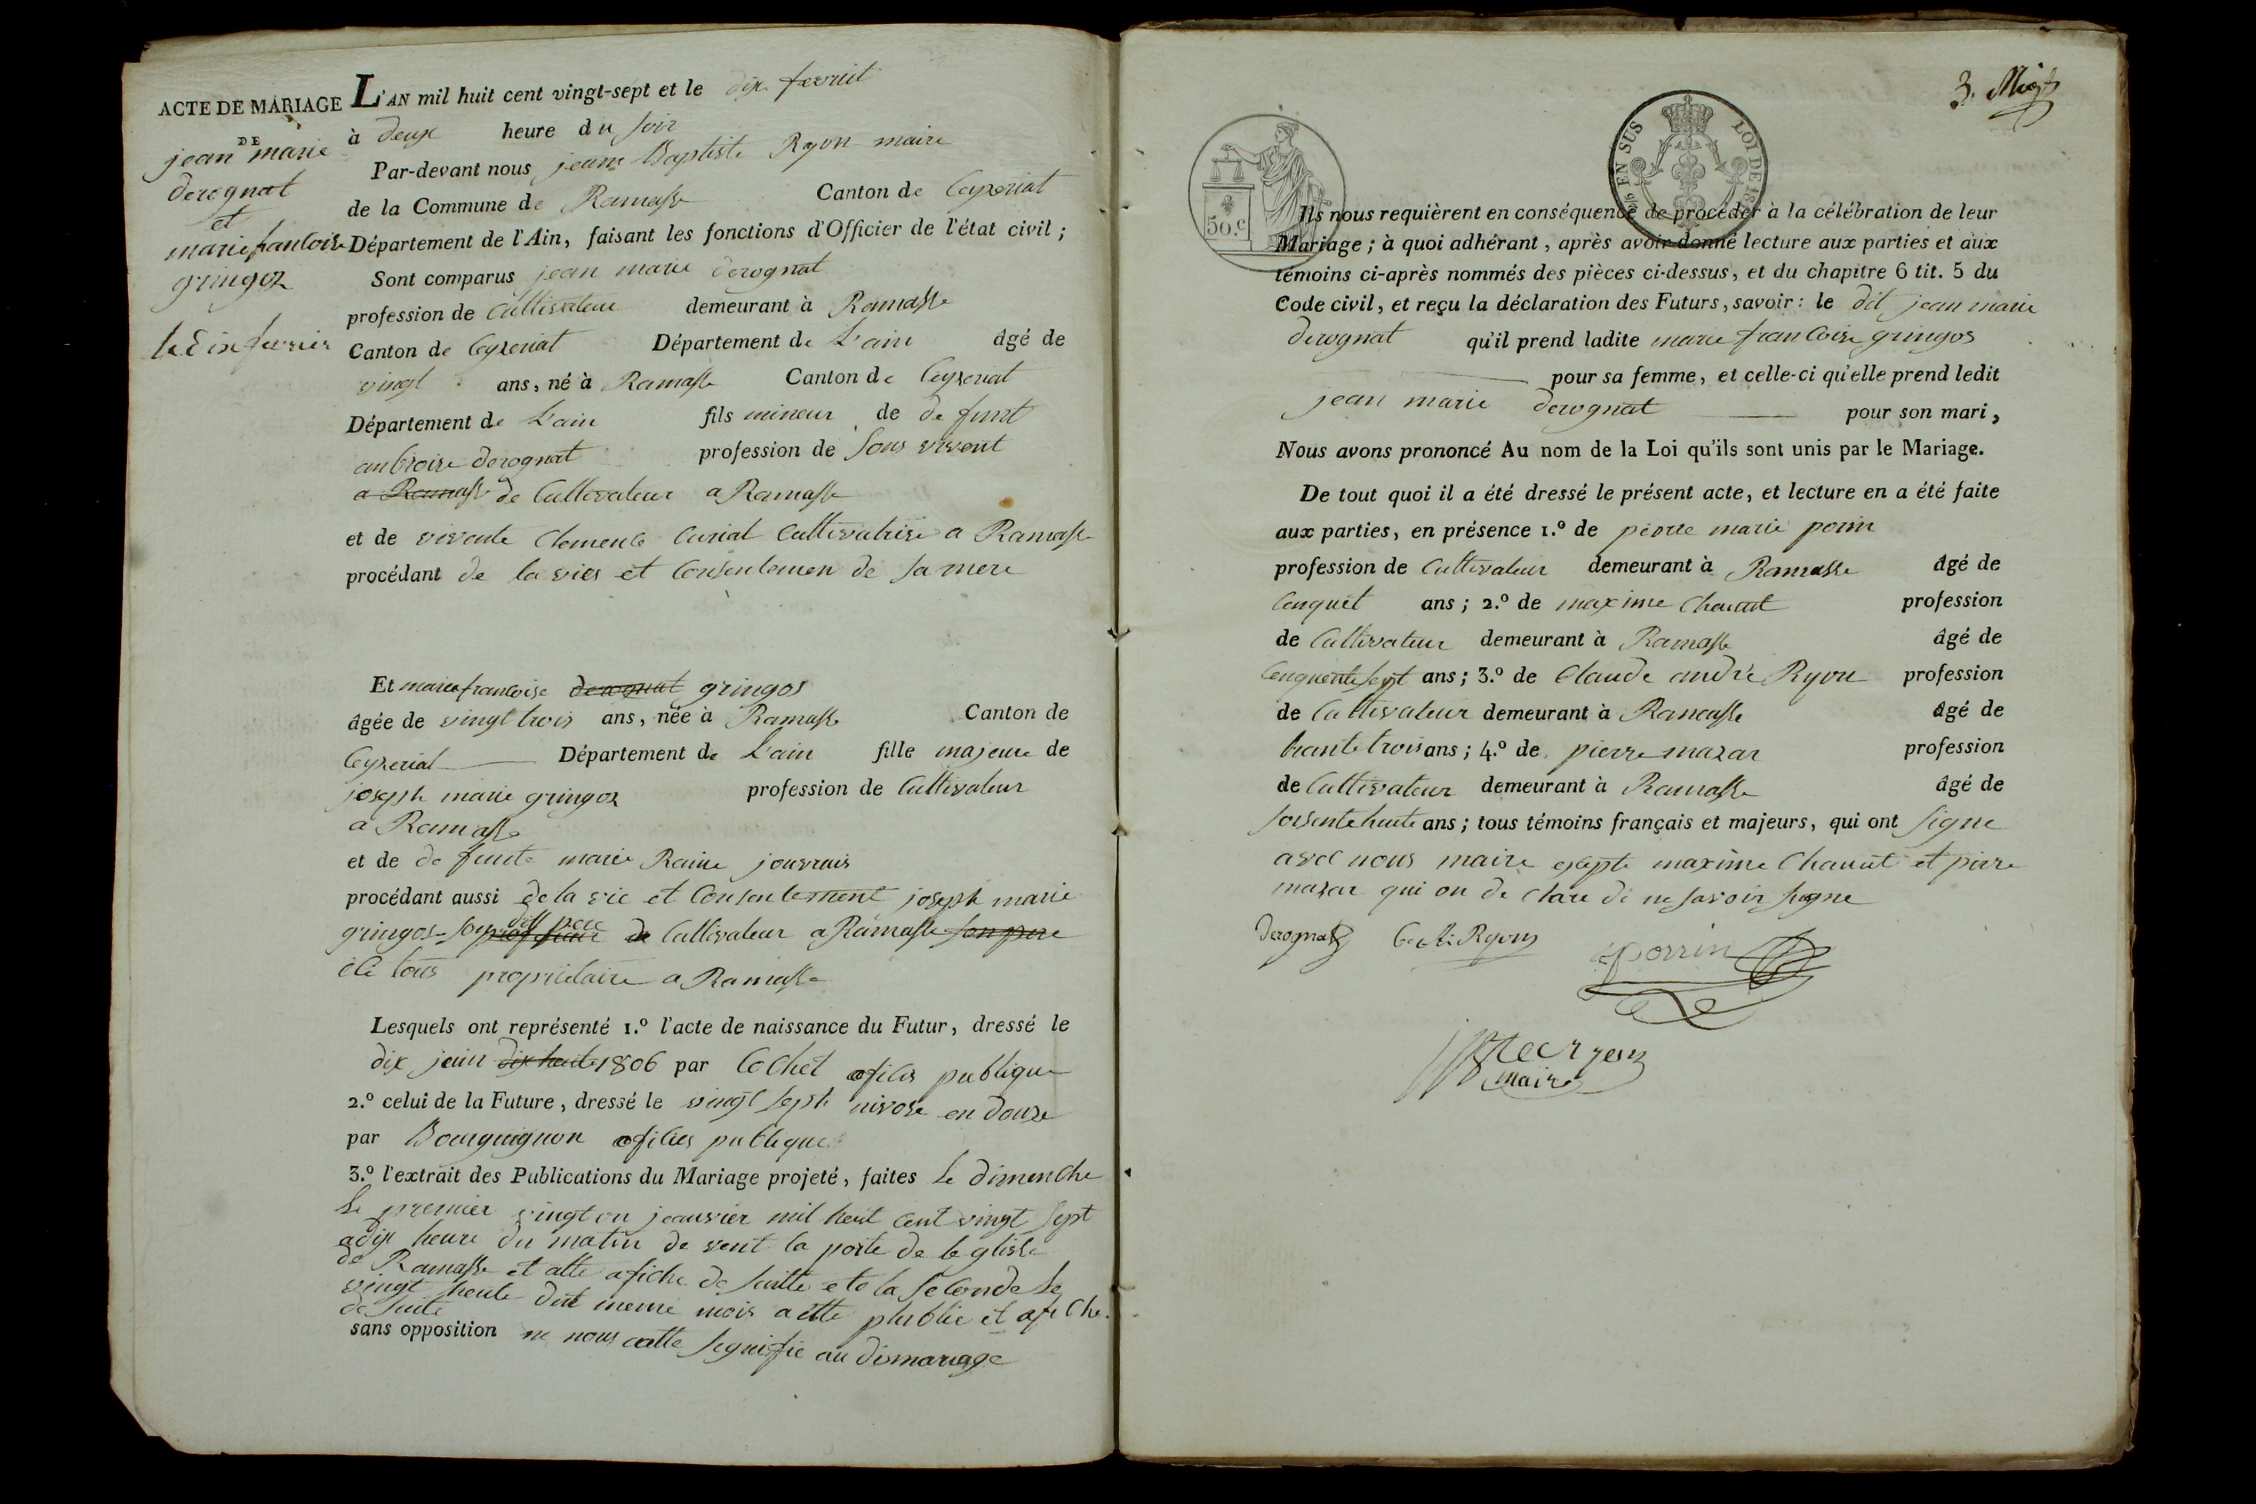 ACTE DE MARIAGE
DE
jean marie
derognat
et
marie francoise
gringoz
le dix fevrier
L'AN mil huit cent vingt-sept et le dix fevrier
à deux heure du soir
Par-devant nous jeane Baptiste Ryon maire
de la Commune de Ramasse Canton de Ceyzeriat
Département de l'Ain, faisant les fonctions d'Officier de l'état civil ;
Sont comparus jean marie derognat
profession de Cultivateur demeurant à Ramasse
Canton de Ceyzeriat Département de L'ain âgé de
vingt ans, né à Ramasse Canton de Ceyzeriat
Département de L'ain fils mineur de de funt
anbroise derognat profession de sous vivent
a Ramasse de Cultivateur a Ramasse
et de vivente Clemence Curial Cultivatrise a Ramasse
procédant de la vies et Consentemen de sa mere
Et marie francoise derognat gringos
âgée de vingt trois ans, née à Ramasse Canton de
Ceyzeriat Département de L'ain fille majeure de
joseph marie gringoz profession de Cultivateur
a Ramasse
et de de funte marie Raine jouvrais
procédant aussi de la vie et Consentement joseph marie
gringos son dit pere de Cultivateur a Ramasse son pere
propriétaire a Ramasse
Lesquels ont représenté 1.º l'acte de naissance du Futur, dressé le
dix juin dix huite 1806 par Cochet ofiles publique
2.º celui de la Future, dressé le vingt septe nivose en douze
par Bourguignon ofilies publique
3.º l'extrait des Publications du Mariage projeté, faites Le dimenche
Le premier vingt un jeanvier mil heuit cent vingt sept
a dix heure du matin de vent la porte de le glisse
de Ramasse et atte afiche de suitte ete la seConde Le
vingt heute dut meme mois a ette plublie et afiChe
de suite
sans opposition ne nous eatte seguifie au dimariage
3. Mig
50.c
EN SUS LOI DE 18
Ils nous requièrent en conséquence de procéder à la célébration de leur
Mariage ; à quoi adhérant, après avoir donné lecture aux parties et aux
témoins ci-après nommés des pièces ci-dessus, et du chapitre 6 tit. 5 du
Code civil, et reçu la déclaration des Futurs, savoir : le dit jean marie
derognat qu'il prend ladite marie franCoise gringos
pour sa femme, et celle-ci qu'elle prend ledit
jean marie derognat pour son mari,
Nous avons prononcé Au nom de la Loi qu'ils sont unis par le Mariage.
De tout quoi il a été dressé le présent acte, et lecture en a été faite
aux parties, en présence 1.º de pierre marie perin
profession de Cultivateur demeurant à Ramasse âgé de
Cenquet ans ; 2.º de maxime Chanut profession
de Cultivateur demeurant à Ramasse âgé de
Cenquente sept ans ; 3.º de Claude andré Ryon profession
de Cultivateur demeurant à Ramasse âgé de
trante trois ans ; 4.º de pierre mazar profession
de Cultivateur demeurant à Ramasse âgé de
soisente heute ans ; tous témoins français et majeurs, qui ont signe
avec nous maire exepte maxime Chanut et pirre
mazar qui on de Clare de ne savoir signe
Derognat Ryon porrin
maire